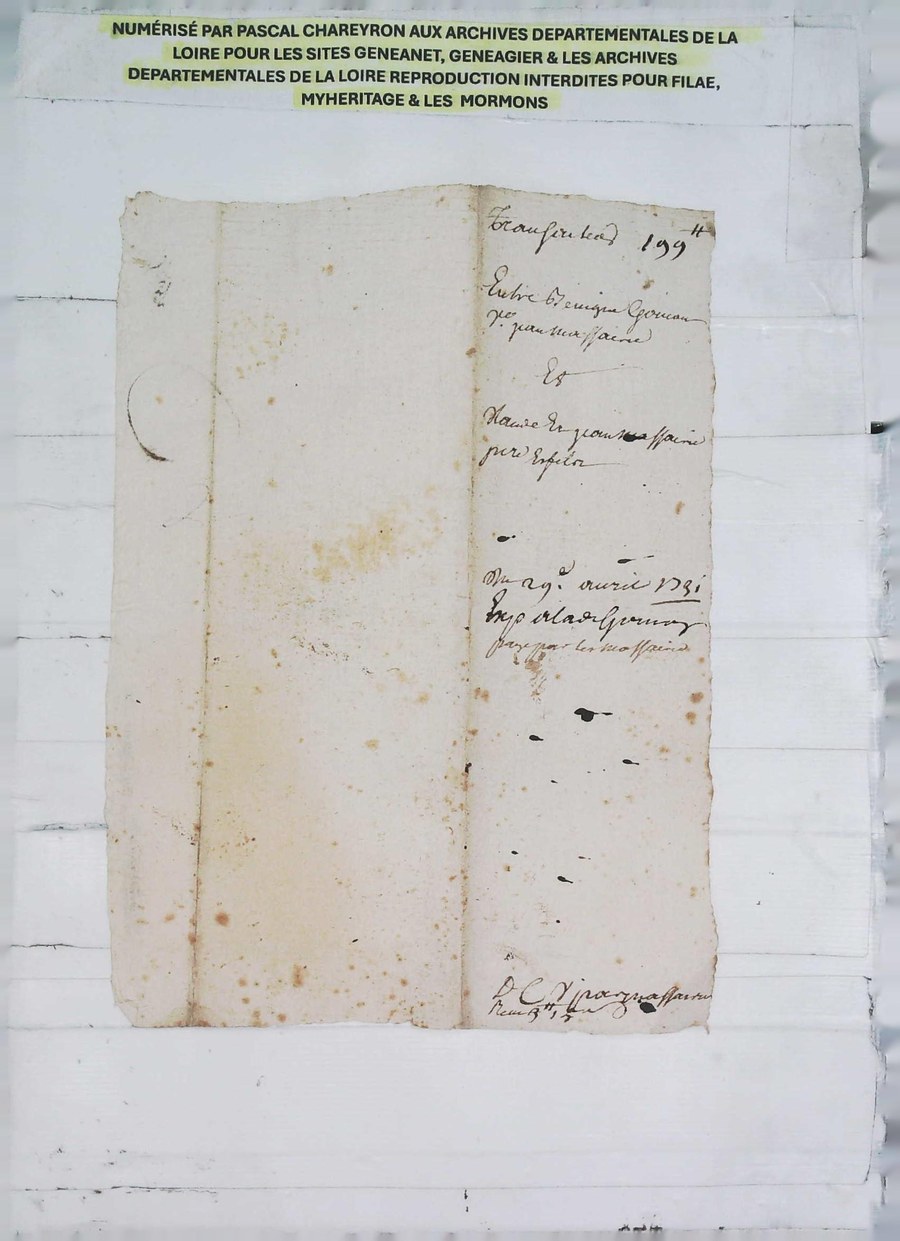 NUMÉRISÉ PAR PASCAL CHAREYRON AUX ARCHIVES DEPARTEMENTALES DE LA
LOIRE POUR LES SITES GENEANET, GENEAGIER & LES ARCHIVES
DEPARTEMENTALES DE LA LOIRE REPRODUCTION INTERDITES POUR FILAE,
MYHERITAGE & LES MORMONS
199 ᵗᵗ
Entre Benigne
jean massaire
Et
Claude Et jean massaire
pere Et filz
Du 29e avril 1731
Exp
paye par les massaire
massaire